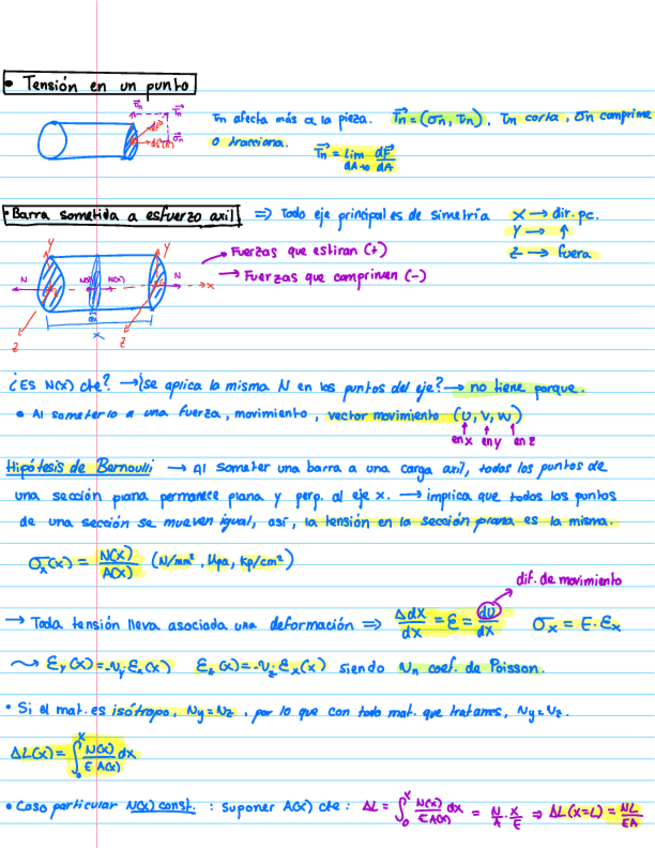 • Tensión en un punto
τn afecta más a la pieza. T⃗n=(σn, τn). τn corta, σn comprime
o tracciona. T⃗n = lim dA→0 dF⃗/dA
• Barra sometida a esfuerzo axil ⇒ Todo eje principal es de simetría X → dir. pc.
Y → ↑
Z → fuera
→ Fuerzas que estiran (+)
→ Fuerzas que comprimen (-)
Y Y
N N(x) N(x) N → x
Z Z
X
¿Es N(x) cte? → ¿se aplica la misma N en los puntos del eje? → no tiene porque.
• Al someterlo a una fuerza, movimiento, vector movimiento (U, V, W)
en x en y en z
Hipótesis de Bernoulli → Al someter una barra a una carga axil, todos los puntos de
una sección plana permanece plana y perp. al eje x. → implica que todos los puntos
de una sección se mueven igual, así, la tensión en la sección plana es la misma.
σx(x) = N(x)/A(x) (N/mm², Mpa, Kp/cm²)
dif. de movimiento
→ Toda tensión lleva asociada una deformación ⇒ Δdx/dx = ε = du/dx σx = E·εx
⇝ εy(x)=-νy·εx(x) εz(x)=-νz·εx(x) siendo νn coef. de Poisson.
• Si el mat. es isótropo, νy=νz, por lo que con todo mat. que tratemos, νy=νz.
ΔL(x) = ∫₀ˣ N(x)/(E A(x)) dx
• Caso particular N(x) const. : suponer A(x) cte: ΔL = ∫₀ˣ N(x)/(E A(x)) dx = N/A · X/E ⇒ ΔL(x=L) = NL/EA